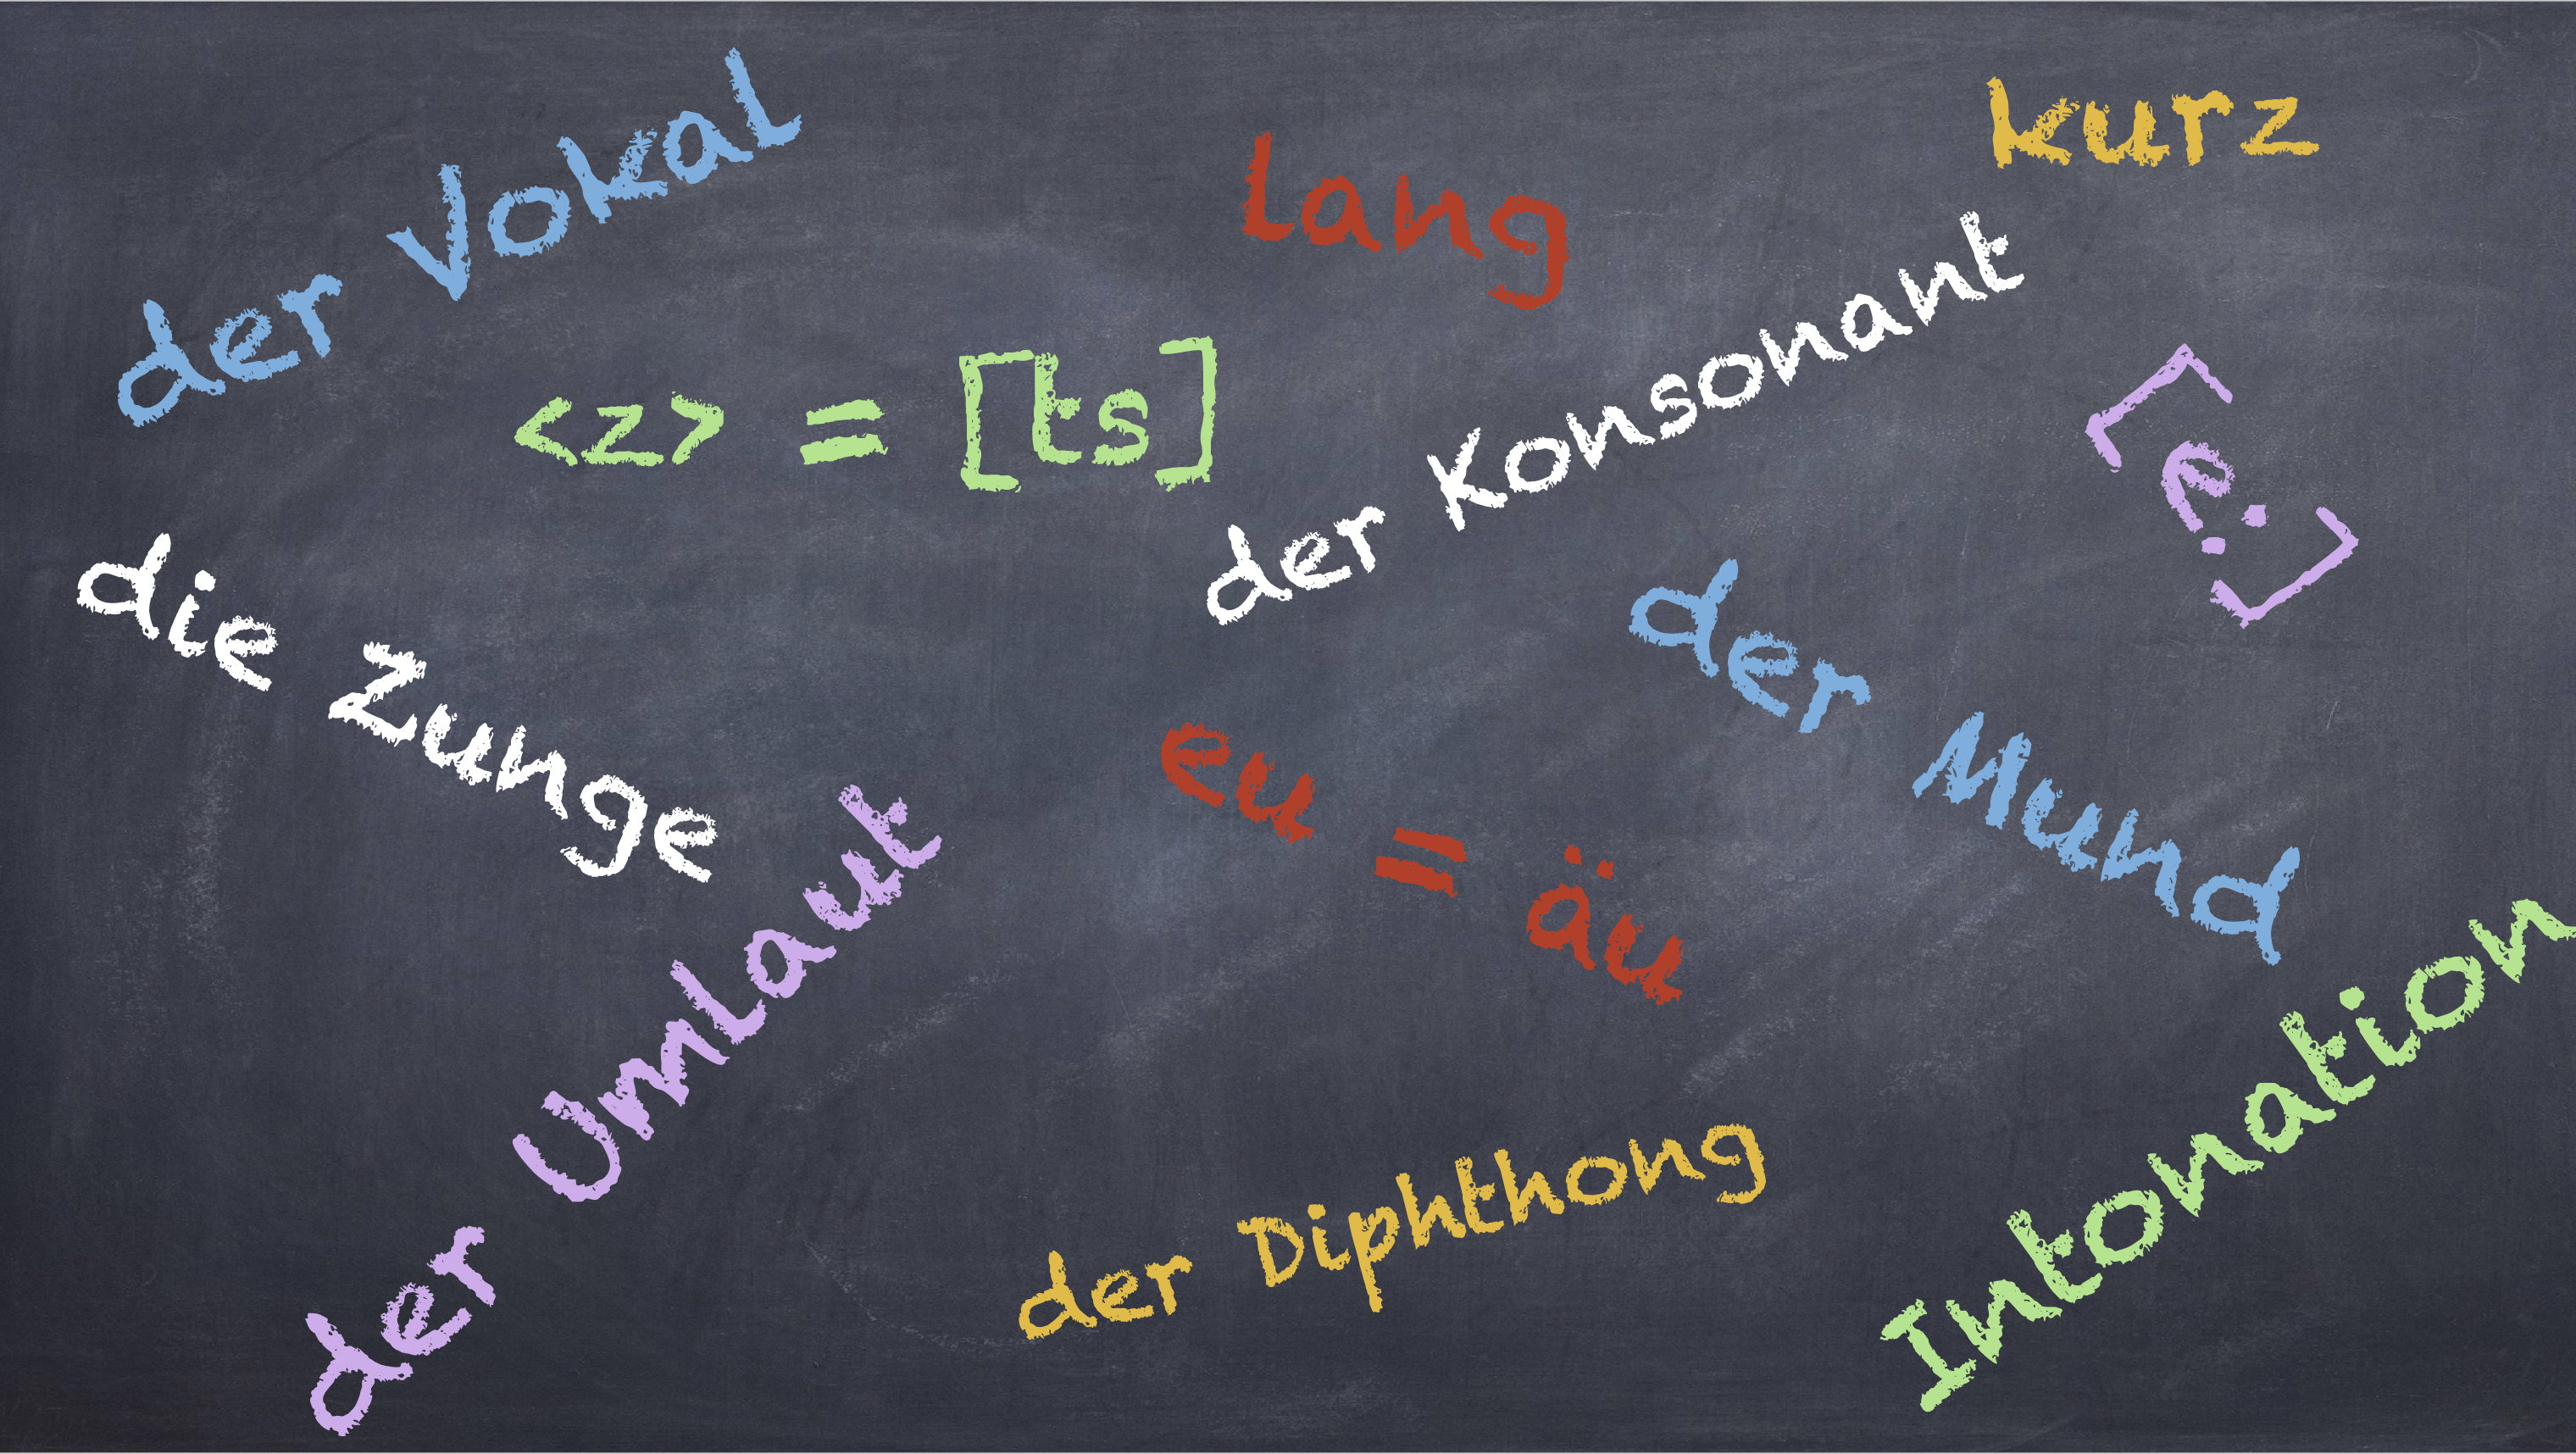 der Vokal
lang
kurz
<z> = [ts]
der Konsonant
[e:]
die Zunge
der Mund
eu = äu
der Umlaut
der Diphthong
Intonation